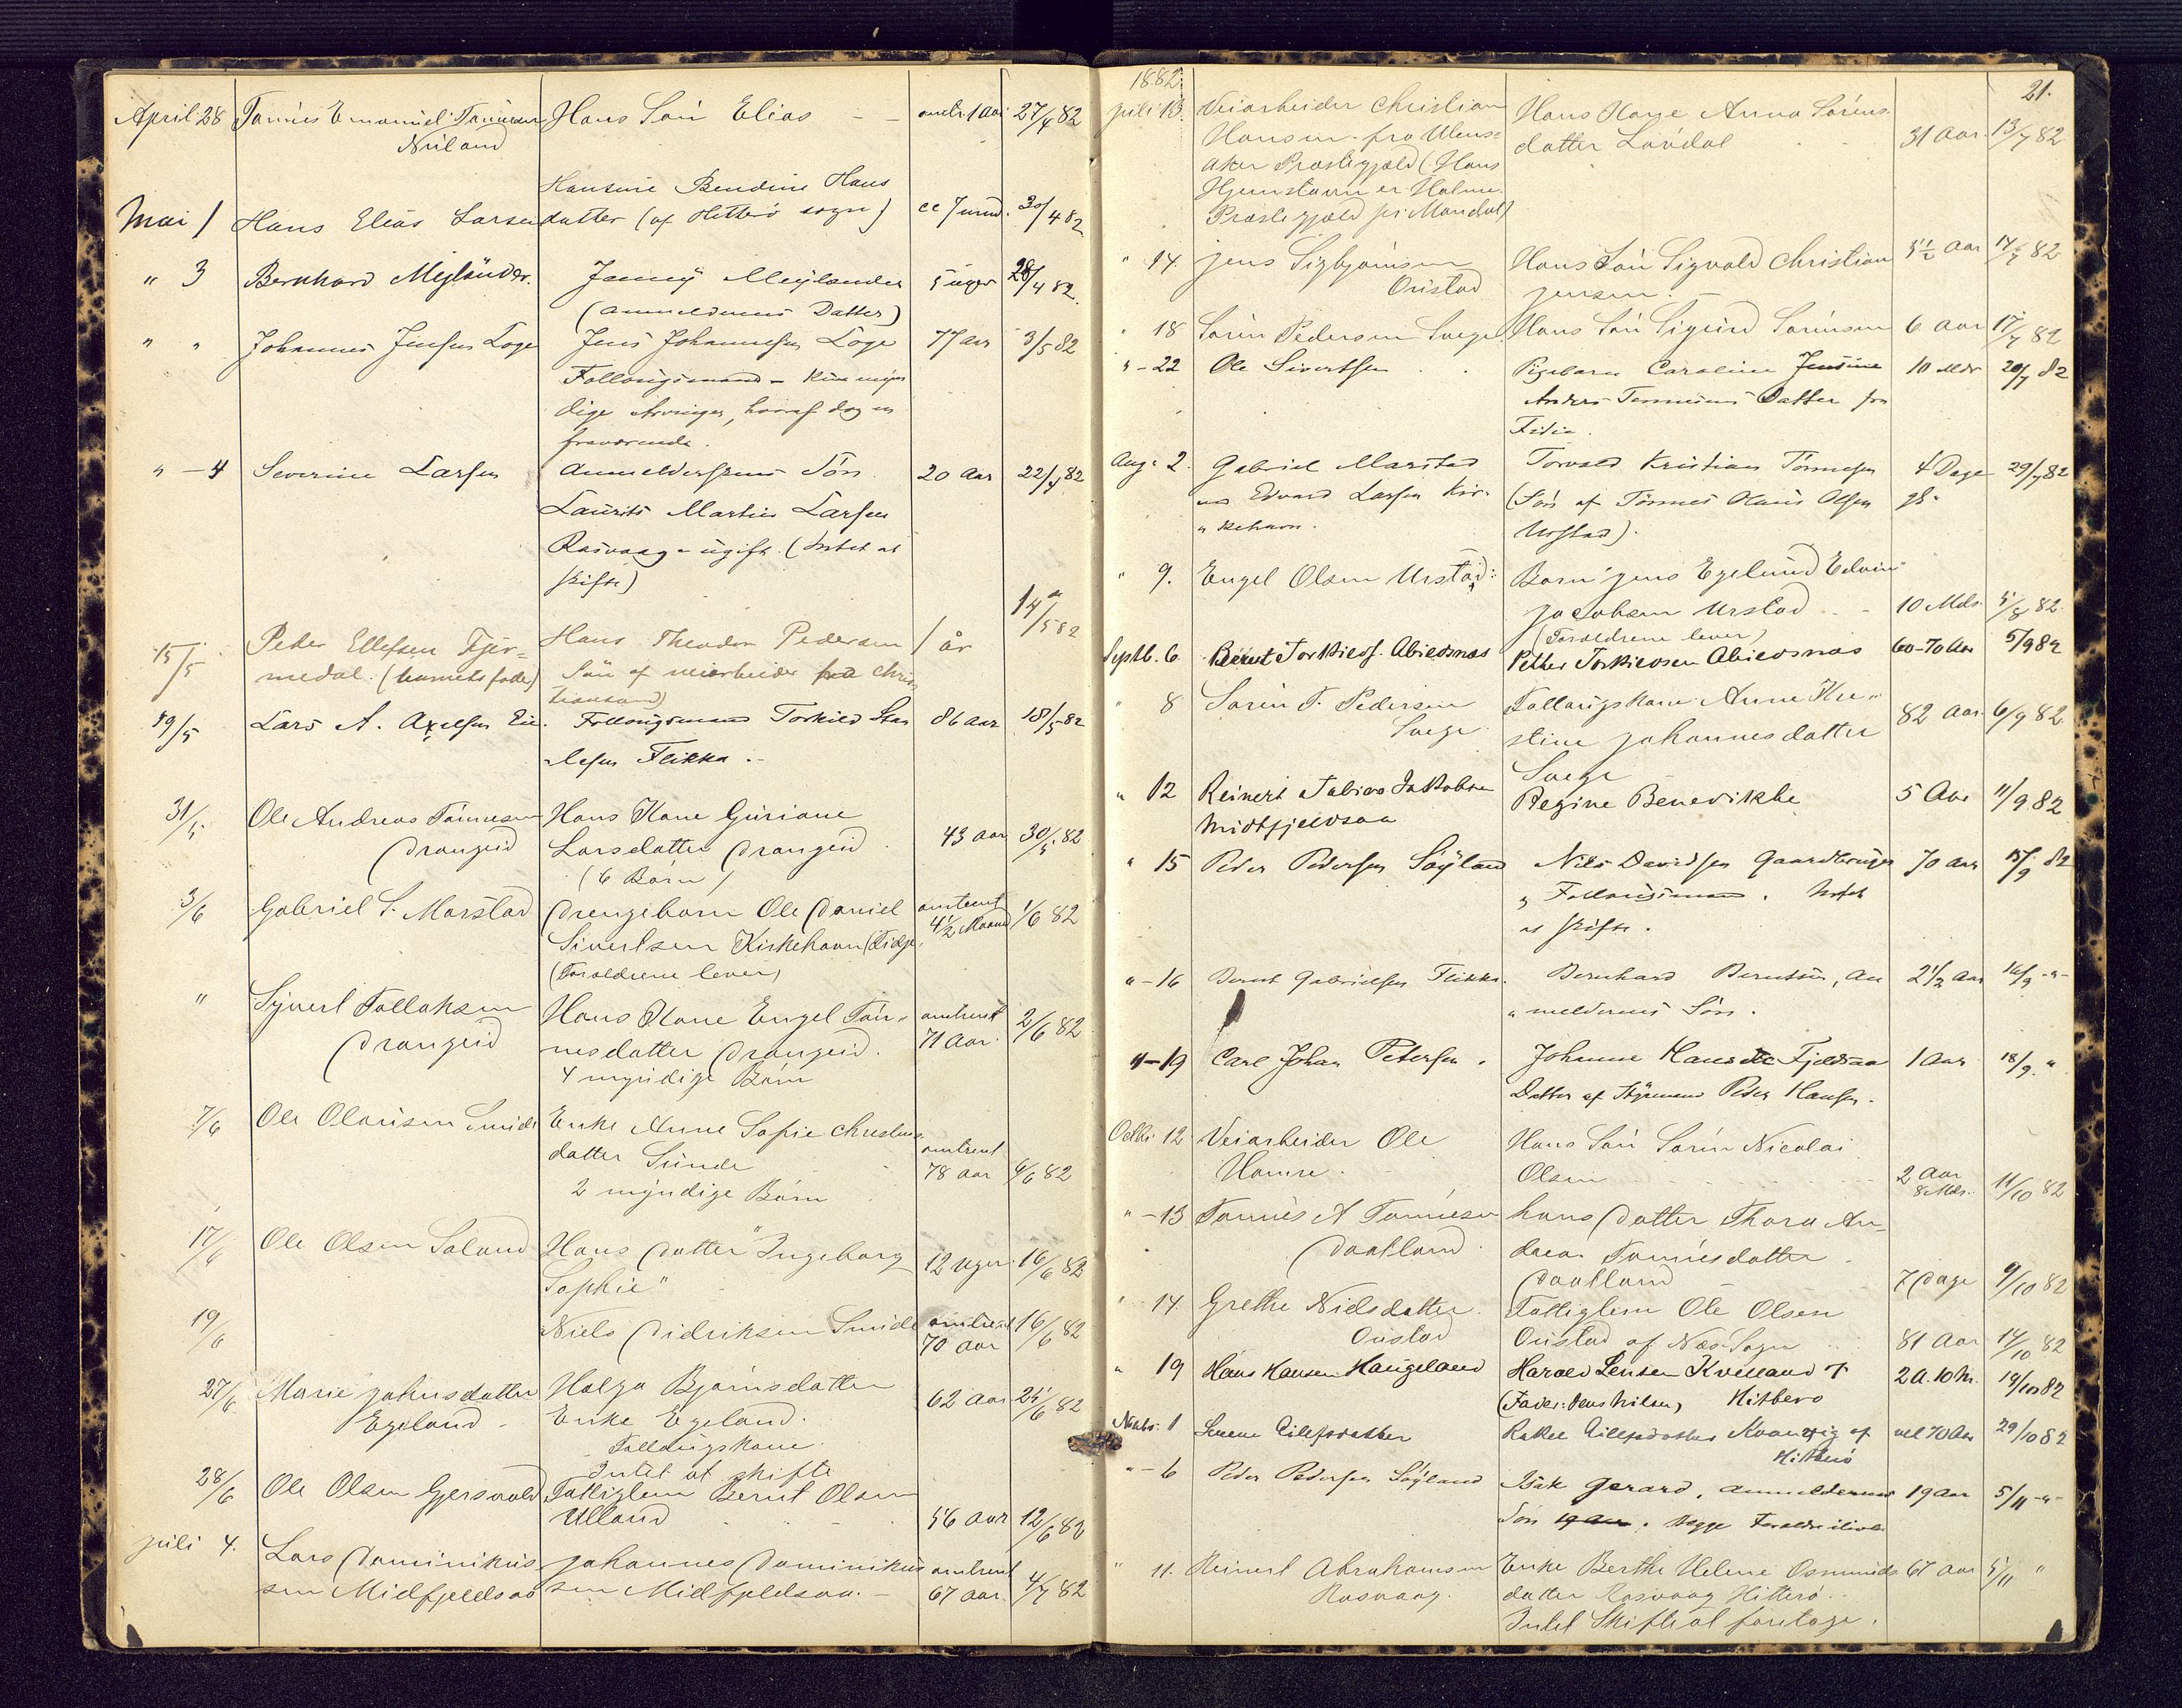 April 28 Tønnes Emanuel Tønnesen Hans Søn Elias omtr. 1 Aar 27/4 82
Niland
Hansine Bendine Hans
Mai 1 Hans Elias Larsen datter (af Hitterø sogn) 30/4 82
" 3 Bernhard Mejlænder. Jenny Mejlænder 5 uger 28/4 82.
(anmelderens Datter)
" " Johannes Jensen Loge Jens Johannesen Loge 77 aar 3/5 82
Follougsmand - Kun myn
dige Arvinger, hvoraf dog en
fraværende.
" - 4 Severine Larsen Anmelderskens Søn 20 Aar 22/4 82
Laurits Martin Larsen
Rasvaag - ugift. (Intet at
skifte)
14/5 82
15/5 Peder Ellefsen Fjer= Hans Theodor Pedersen 1 år
medal. (barnets fader) Søn af veiarbeider fra Chris
tiansand)
19/5 Lars A. Axelsen Eie. Follougsmand Torkild Sta 86 aar 18/5 82
Flikka.
31/5 Ole Andreas Tønnesen Hans Kone Guriane
Drangeid Larsdatter Drangeid 43 aar 30/5 82
(6 Børn)
3/6 Gabriel S. Marstad Drengebarn Ole Daniel omtrent
Sivertsen Kirkehavn (Fidje 4½ Maaned 1/6 82
(Forældrene lever)
" Syvert Tollaksen Hans Kone Engel Tøn- omtrent 2/6 82
Drangeid nesdatter Drangeid. 71 Aar.
4 myndige Børn
7/6 Ole Olausen Sunde Enke Anne Sofie Christens
datter Sunde omtrent
78 aar 6/6 82
2 myndige Børn
17/6 Ole Olsen Soland Hans Datter "Ingeborg 12 uger 16/6 82
Sophie"
19/6 Niels Didriksen Sunde omtrent 16/6 82
70 aar
27/6 Marie Johnsdatter Helga Bjørnsdatter 62 aar 25/6 82
Egeland Enke Egeland.
Follougskone
Intet at skifte
28/6 Ole Olsen Gjersvold Fattiglem Bernt Olsen
Ulland 56 aar 12/6 82
juli 4. Lars Dominikus Johannes Dominikus omtrent
sen Midfjeldsaa sen Midfjeldsaa. - 67 aar. 4/7 82
1882. 21.
juli 13. Veiarbeider Christian Hans Kone Anna Sørens
Hansen fra datter Løvdal 31 Aar. 13/7 82
aker Præstegjæld (Hans
Hjemstavn er Holme
Præstegjæld pr. Mandal)
" 14. Jens Sigbjørnsen Hans Søn Sigvald Christian 5½ Aar 14/7 82
Oustad Jensen. -
" 18 Søren Pedersen Svege Hans Søn Sigurd Sørensen 6 Aar 17/7 82
" - 22 Ole Sivertsen Pigebarn Caroline Jensine 10 Mdr 20/7 82
Anders Tønnesens Datter fra
Fidje.
Aug. 2. Gabriel Marstad Torvald Kristian Tønnesen 4 Dage 29/7 82
Edvard Larsen Kir- (Søn af Tønnes Olaus Olsen gl.
" kehavn. Urstad).
" 9. Engel Olsen Urstad: Barn Jens Egelund Edvin
Jacobsen Urstad - 10 Mdr. 5/8 82.
(Forældrene lever)
Septb. 6 Berent Torkilds. Abiedsnæs Petter Torkildsen Abiedsnæs 60-70 Aar 5/9 82
" 8 Søren T. Pedersen Follougskone Anne Kri-
Svege stine Johannesdatter 82 Aar. 6/9 82
Svege
" 12 Reinert Tobias Jakobsen Regine Benedikte 5 Aar 11/9 82
Midtfjeldsaa
" 15 Peder Pedersen Søyland Nils Davidsen Gaardbruger 70 aar 15/9 82
" Follougsmand. Intet
at skifte.
" - 16 Bernt Gabrielsen Flikke. Bernhard Berntsen, An 2½ aar 16/9 -"-
" melderens Søn.
" - 19 Carl Johan Petersen. Johanne Fjeldsaa 1 Aar 18/9. "
Datter af Styrmand Peder Hansen.
Octbr 12 Veiarbeider Ole Hans Søn Søren Nicolai
Hamre. Olsen 2 Aar 11/10 82
8 Mdr.
" - 13 Tønnes A Tønnesen hans Datter Thora An-
Daatland drea Tønnesdatter
Daatland 7 Dage 9/10 82
" 14. Grethe Nielsdatter Fattiglem Ole Olsen
Oustad Oustad af Næs Sogn 81 Aar 14/10 82
" 19 Hans Hansen Haugeland Harald Jensen Kvelland 2 A. 10 M. 19/10 82
(Fader: Jens Nilsen) Hitterø
Novbr. 1 Rakel Kvanvig af vel 70 Aar 29/10 82
Hitterø
" - 6 Peder Pedersen Søyland Isak Gerard, anmelderens 19 Aar 5/11 -"-
Søn 19 Aar. Begge Forældre ilive
" 11. Reinert Abrahamsen Enke Berthe Helene Osmunds 67 Aar 5/11 "
Rasvaag. datter Rasvaag Hitterø.
Intet Skifte at foretage.